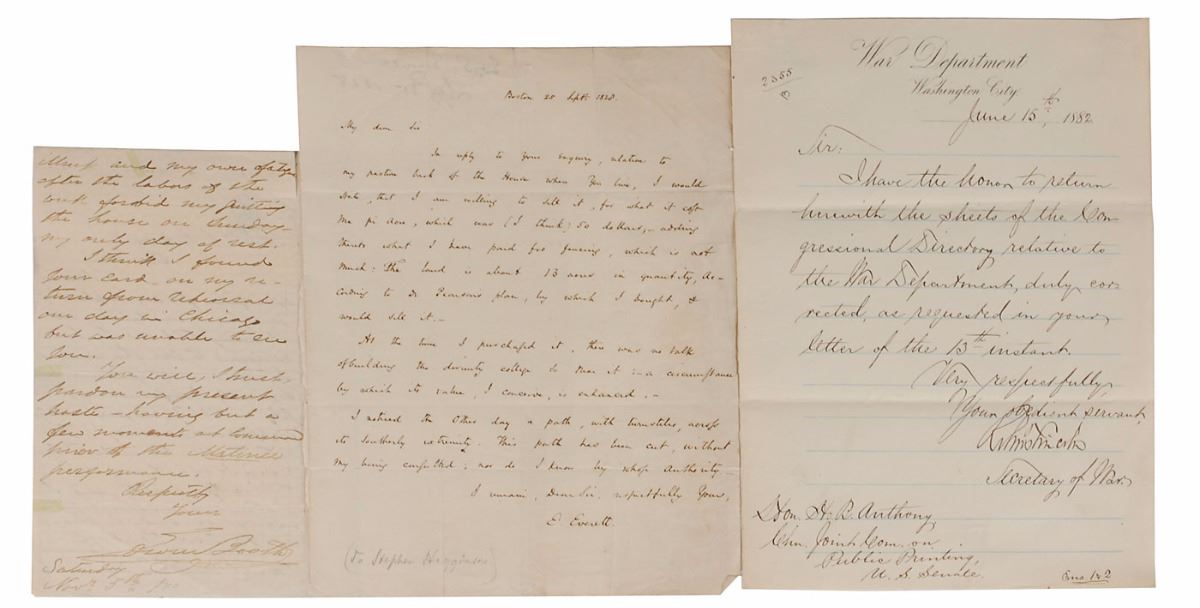 and my own
after the labors of the
week forbid my visiting
the house on Sunday
my only day of rest.
I think I found
your card on my re-
turn from rehearsal
one day in Chicago
but was unable to see
you.
You will, I trust,
pardon my present
haste - having but a
few moments at command
prior to the Matinée
performance.
Respctfly
Yours
Edwin Booth
Saturday
Novr 5th
Boston 25 Septr. 1828.
My dear Sir
In reply to your enquiry, relative to
my pasture back of the House where you live, I would
state, that I am willing to sell it, for what it cost
me pr acre, which was (I think) 50 dollars, - adding
thereto what I have paid for fencing, which is not
much: The land is about 13 acres in quantity, ac-
cording to Dr Pearson's plan, by which I bought, &
would sell it. -
At the time I purchased it, there was no talk
of building the divinity college so near it :- a circumstance
by which its value, I conceive, is enhanced. -
I noticed the other day a path, with turnstiles, across
its southerly extremity. This path has been cut, without
my being consulted; nor do I know by whose authority.
I remain, Dear Sir, respectfully Yours,
E. Everett.
(To Stephen Higginson)
2355
B
War Department
Washington City
June 15th, 1882
Sir:
I have the honor to return
herewith the sheets of the Con-
gressional Directory relative to
the War Department, duly cor-
rected, as requested in your
letter of the 13th instant.
Very respectfully,
Your obedient servant,
Robert T. Lincoln
Secretary of War.
Hon. H. B. Anthony,
Chn. Joint Com. on
Public Printing,
U. S. Senate.
Enc 1 & 2